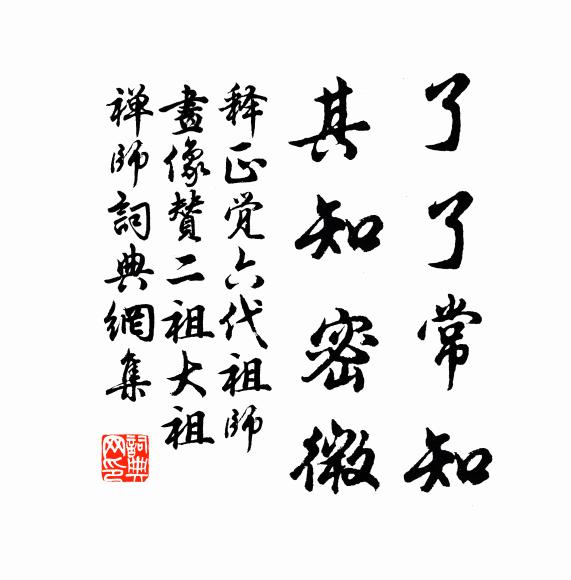 了了常知
其知密微
释正觉六代祖師
畫像赞二祖大祖
禅師詞典網集
詞典网印